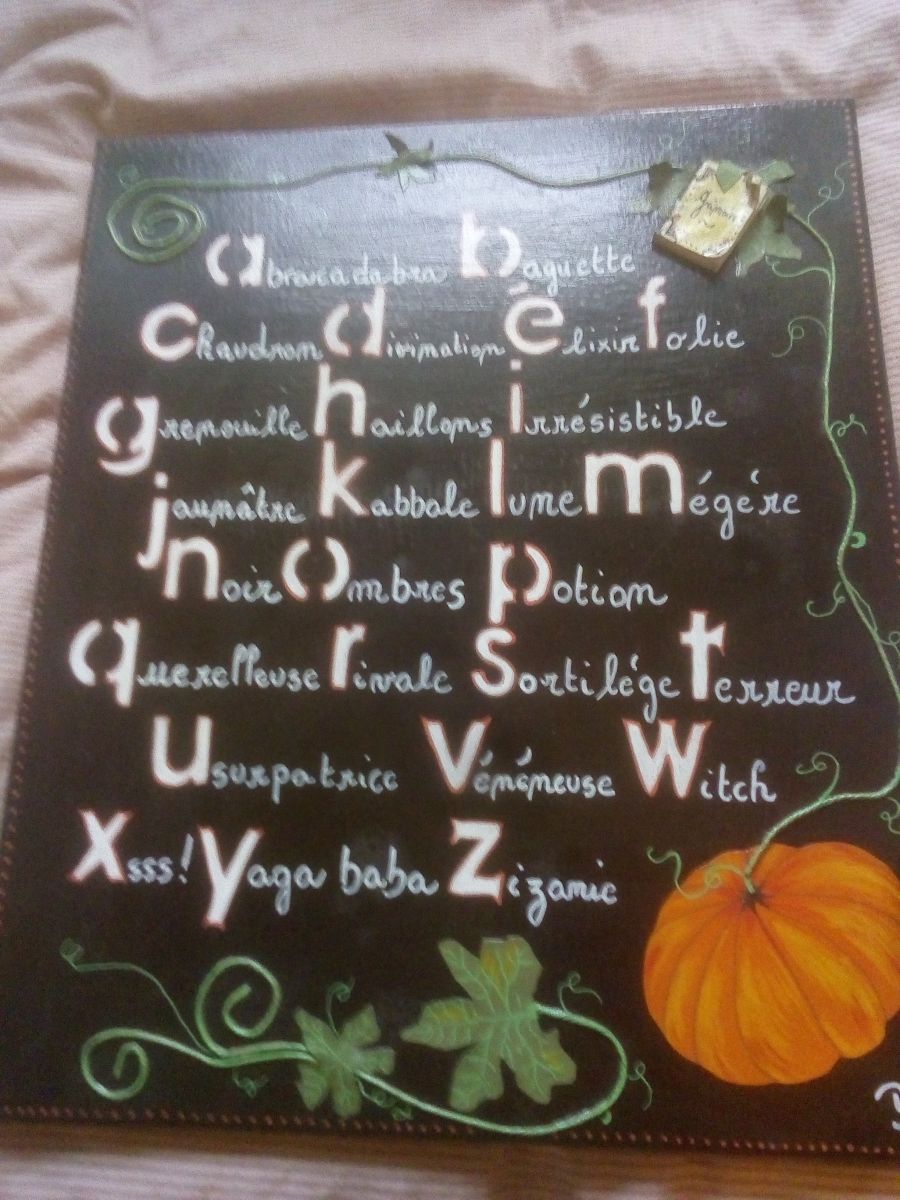 Grimoire
abracadabra baguette
chaudron divination élixir folie
grenouille haillons irrésistible
jaunâtre kabbale lune mégére
noir ombres potion
querelleuse rivale sortilége terreur
usurpatrice vénéneuse witch
xsss! yaga baba zizanie